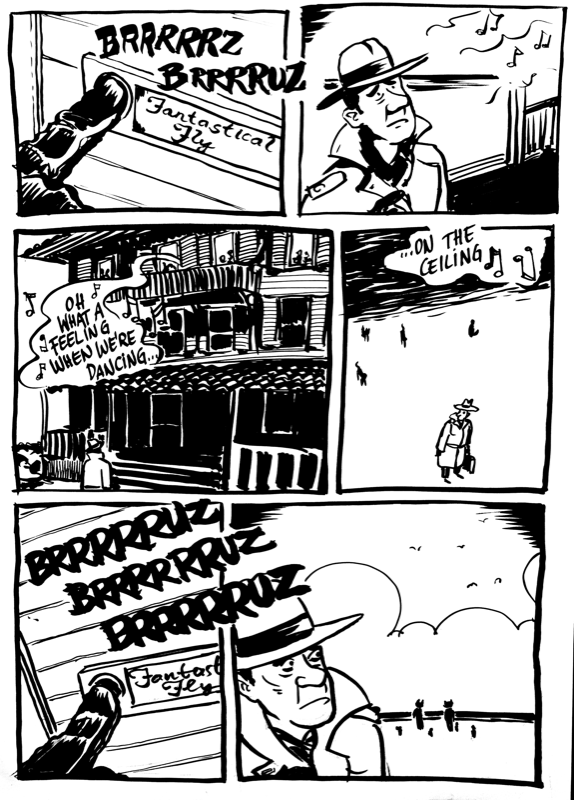 BRRRRRZ
BRRRRUZ
Fantastical
Fly
OH
WHAT A
FEELING
WHEN WE'RE
DANCING...
...ON THE
CEILING
BRRRRRUZ
BRRRRRRUZ
BRRRRRUZ
Fantast
Fly